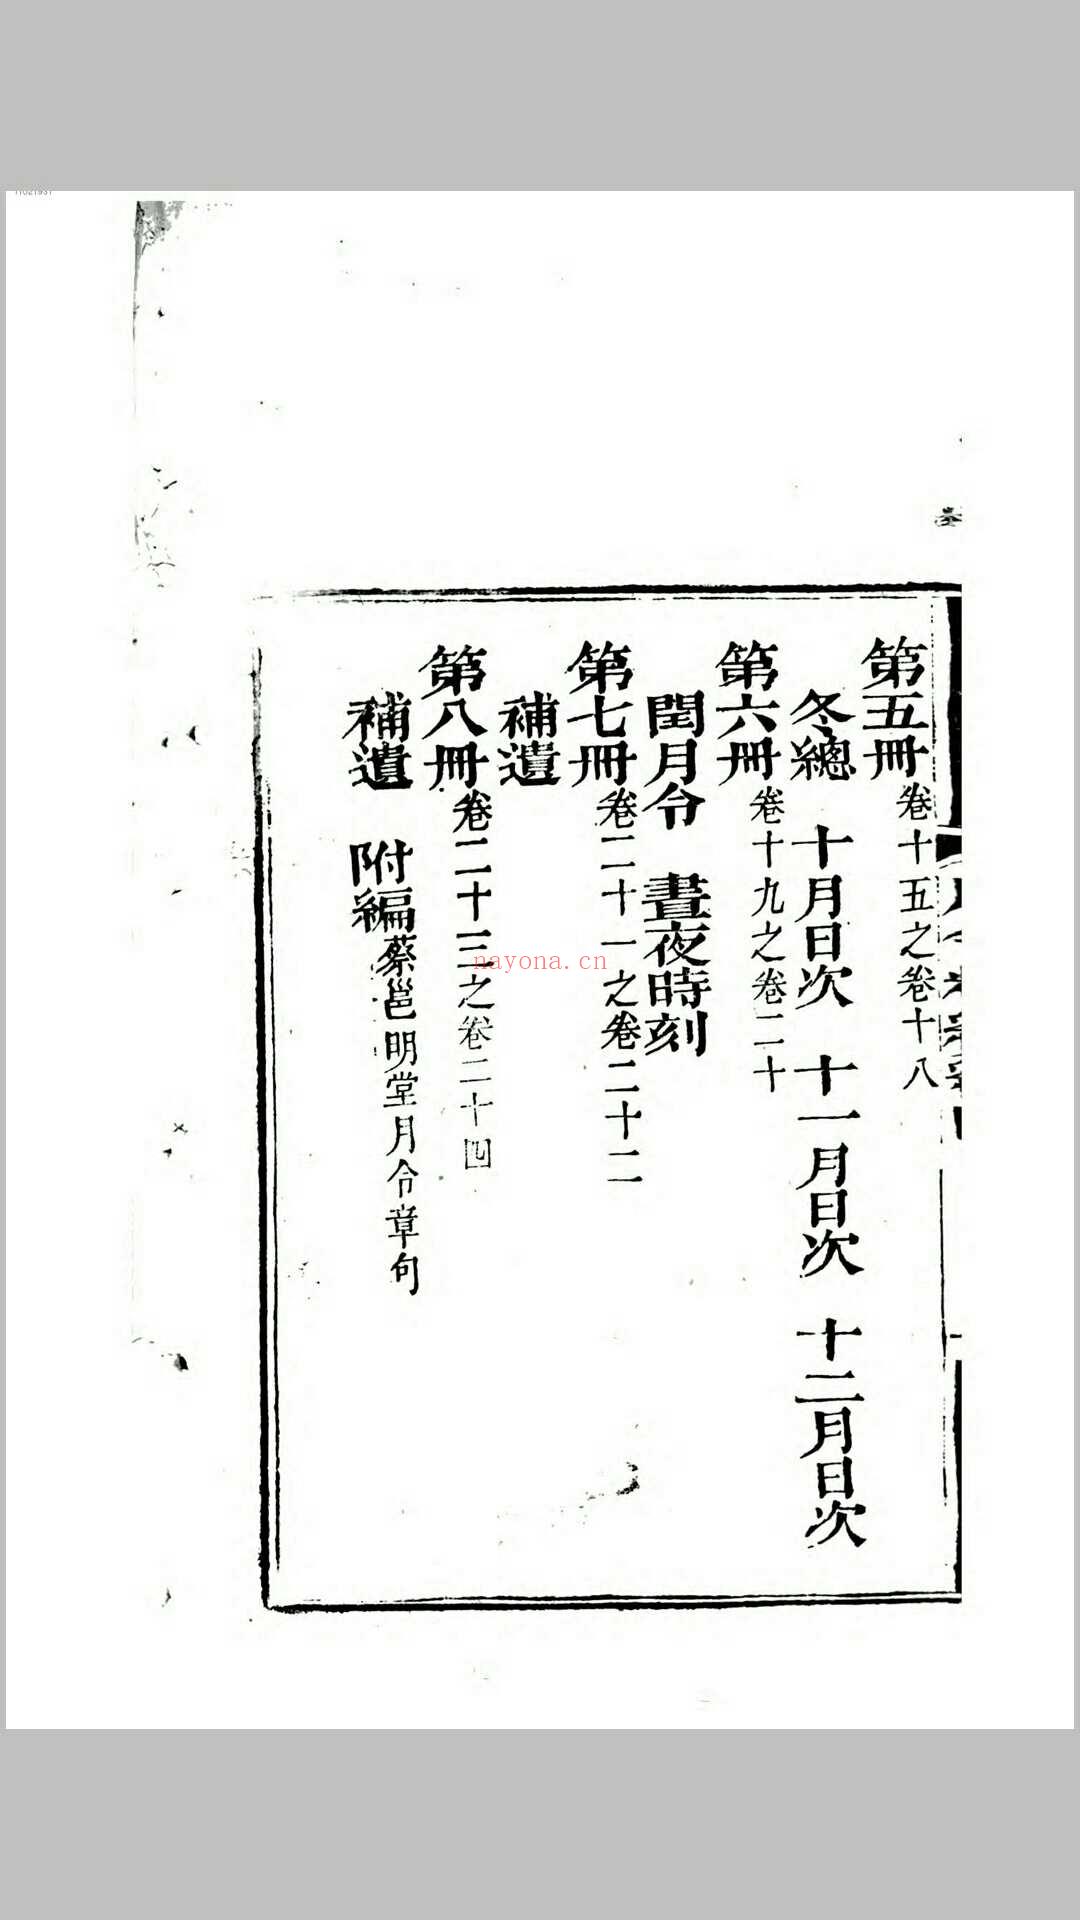 第五冊卷十五之卷十八
冬總 十月日次 十一月日次 十二月日次
第六冊卷十九之卷二十
閏月令 晝夜時刻
第七冊卷二十一之卷二十二
補遺
第八冊卷二十三之卷二十四
補遺 附編蔡邕明堂月令章句
nayona.cn